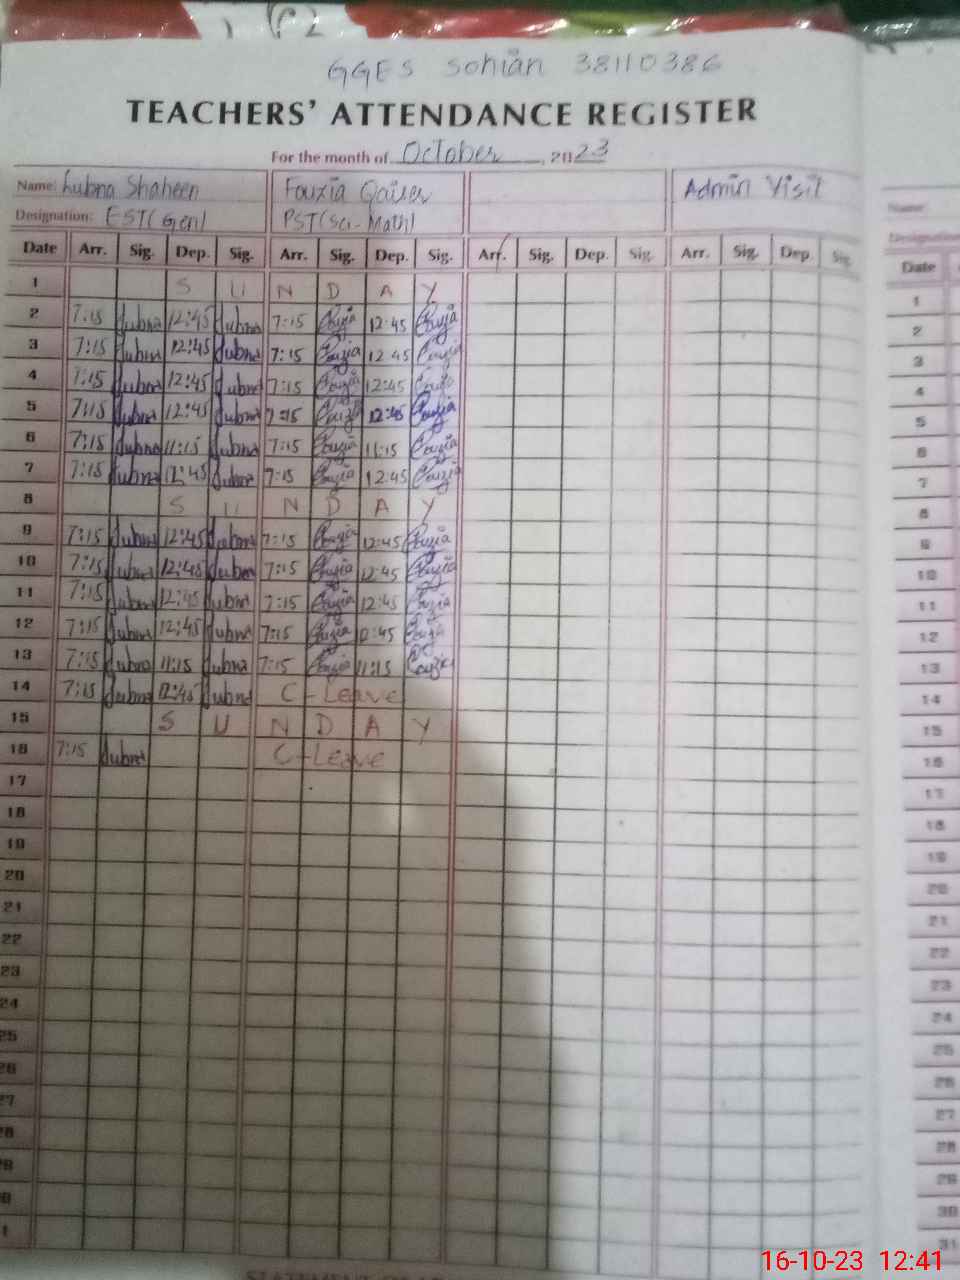 GGES Sohian 38110386
TEACHERS' ATTENDANCE REGISTER
For the month of October, 2023
Name: Lubna Shaheen Fouzia Qaiser Admin Visit
Designation: EST(Gen) PST(Sci-Math)
Date Arr. Sig. Dep. Sig. Arr. Sig. Dep. Sig. Arr. Sig. Dep. Sig. Arr. Sig. Dep. Sig. Date
1 S U N D A Y 1
2 7:15 Lubna 12:45 Lubna 7:15 Fouzia 12:45 Fouzia 2
3 7:15 Lubna 12:45 Lubna 7:15 Fouzia 12:45 Fouzia 3
4 7:15 Lubna 12:45 Lubna 7:15 Fouzia 12:45 Fouzia 4
5 7:15 Lubna 12:45 Lubna 7:15 Fouzia 12:45 Fouzia 5
6 7:15 Lubna 11:15 Lubna 7:15 Fouzia 11:15 Fouzia 6
7 7:15 Lubna 12:45 Lubna 7:15 Fouzia 12:45 Fouzia 7
8 S U N D A Y 8
9 7:15 Lubna 12:45 Lubna 7:15 Fouzia 12:45 Fouzia 9
10 7:15 Lubna 12:45 Lubna 7:15 Fouzia 12:45 Fouzia 10
11 7:15 Lubna 12:45 Lubna 7:15 Fouzia 12:45 Fouzia 11
12 7:15 Lubna 12:45 Lubna 7:15 Fouzia 12:45 Fouzia 12
13 7:15 Lubna 11:15 Lubna 7:15 Fouzia 11:15 Fouzia 13
14 7:15 Lubna 12:45 Lubna C-Leave 14
15 S U N D A Y 15
16 7:15 Lubna C-Leave 16
17 17
18 18
19 19
20 20
21 21
22 22
23 23
24 24
25 25
26 26
27 27
28 28
29 29
30 30
31 31
16-10-23 12:41